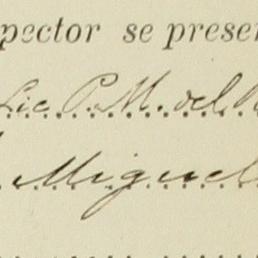 pector se presen
Lic. P. M. del
Miguel